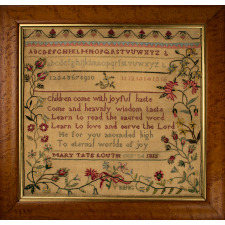 ABCDEFGHIJKLMNOPQRSTUVWXYZ
abcdefghijklmnopqrstuvwxyz
12345678910
Children come with joyful haste
Come and heavenly wisdom taste
Learn to read the sacred word
Learn to love and serve the Lord
He for you ascended high
To eternal worlds of joy
MARY TATE LOUTH